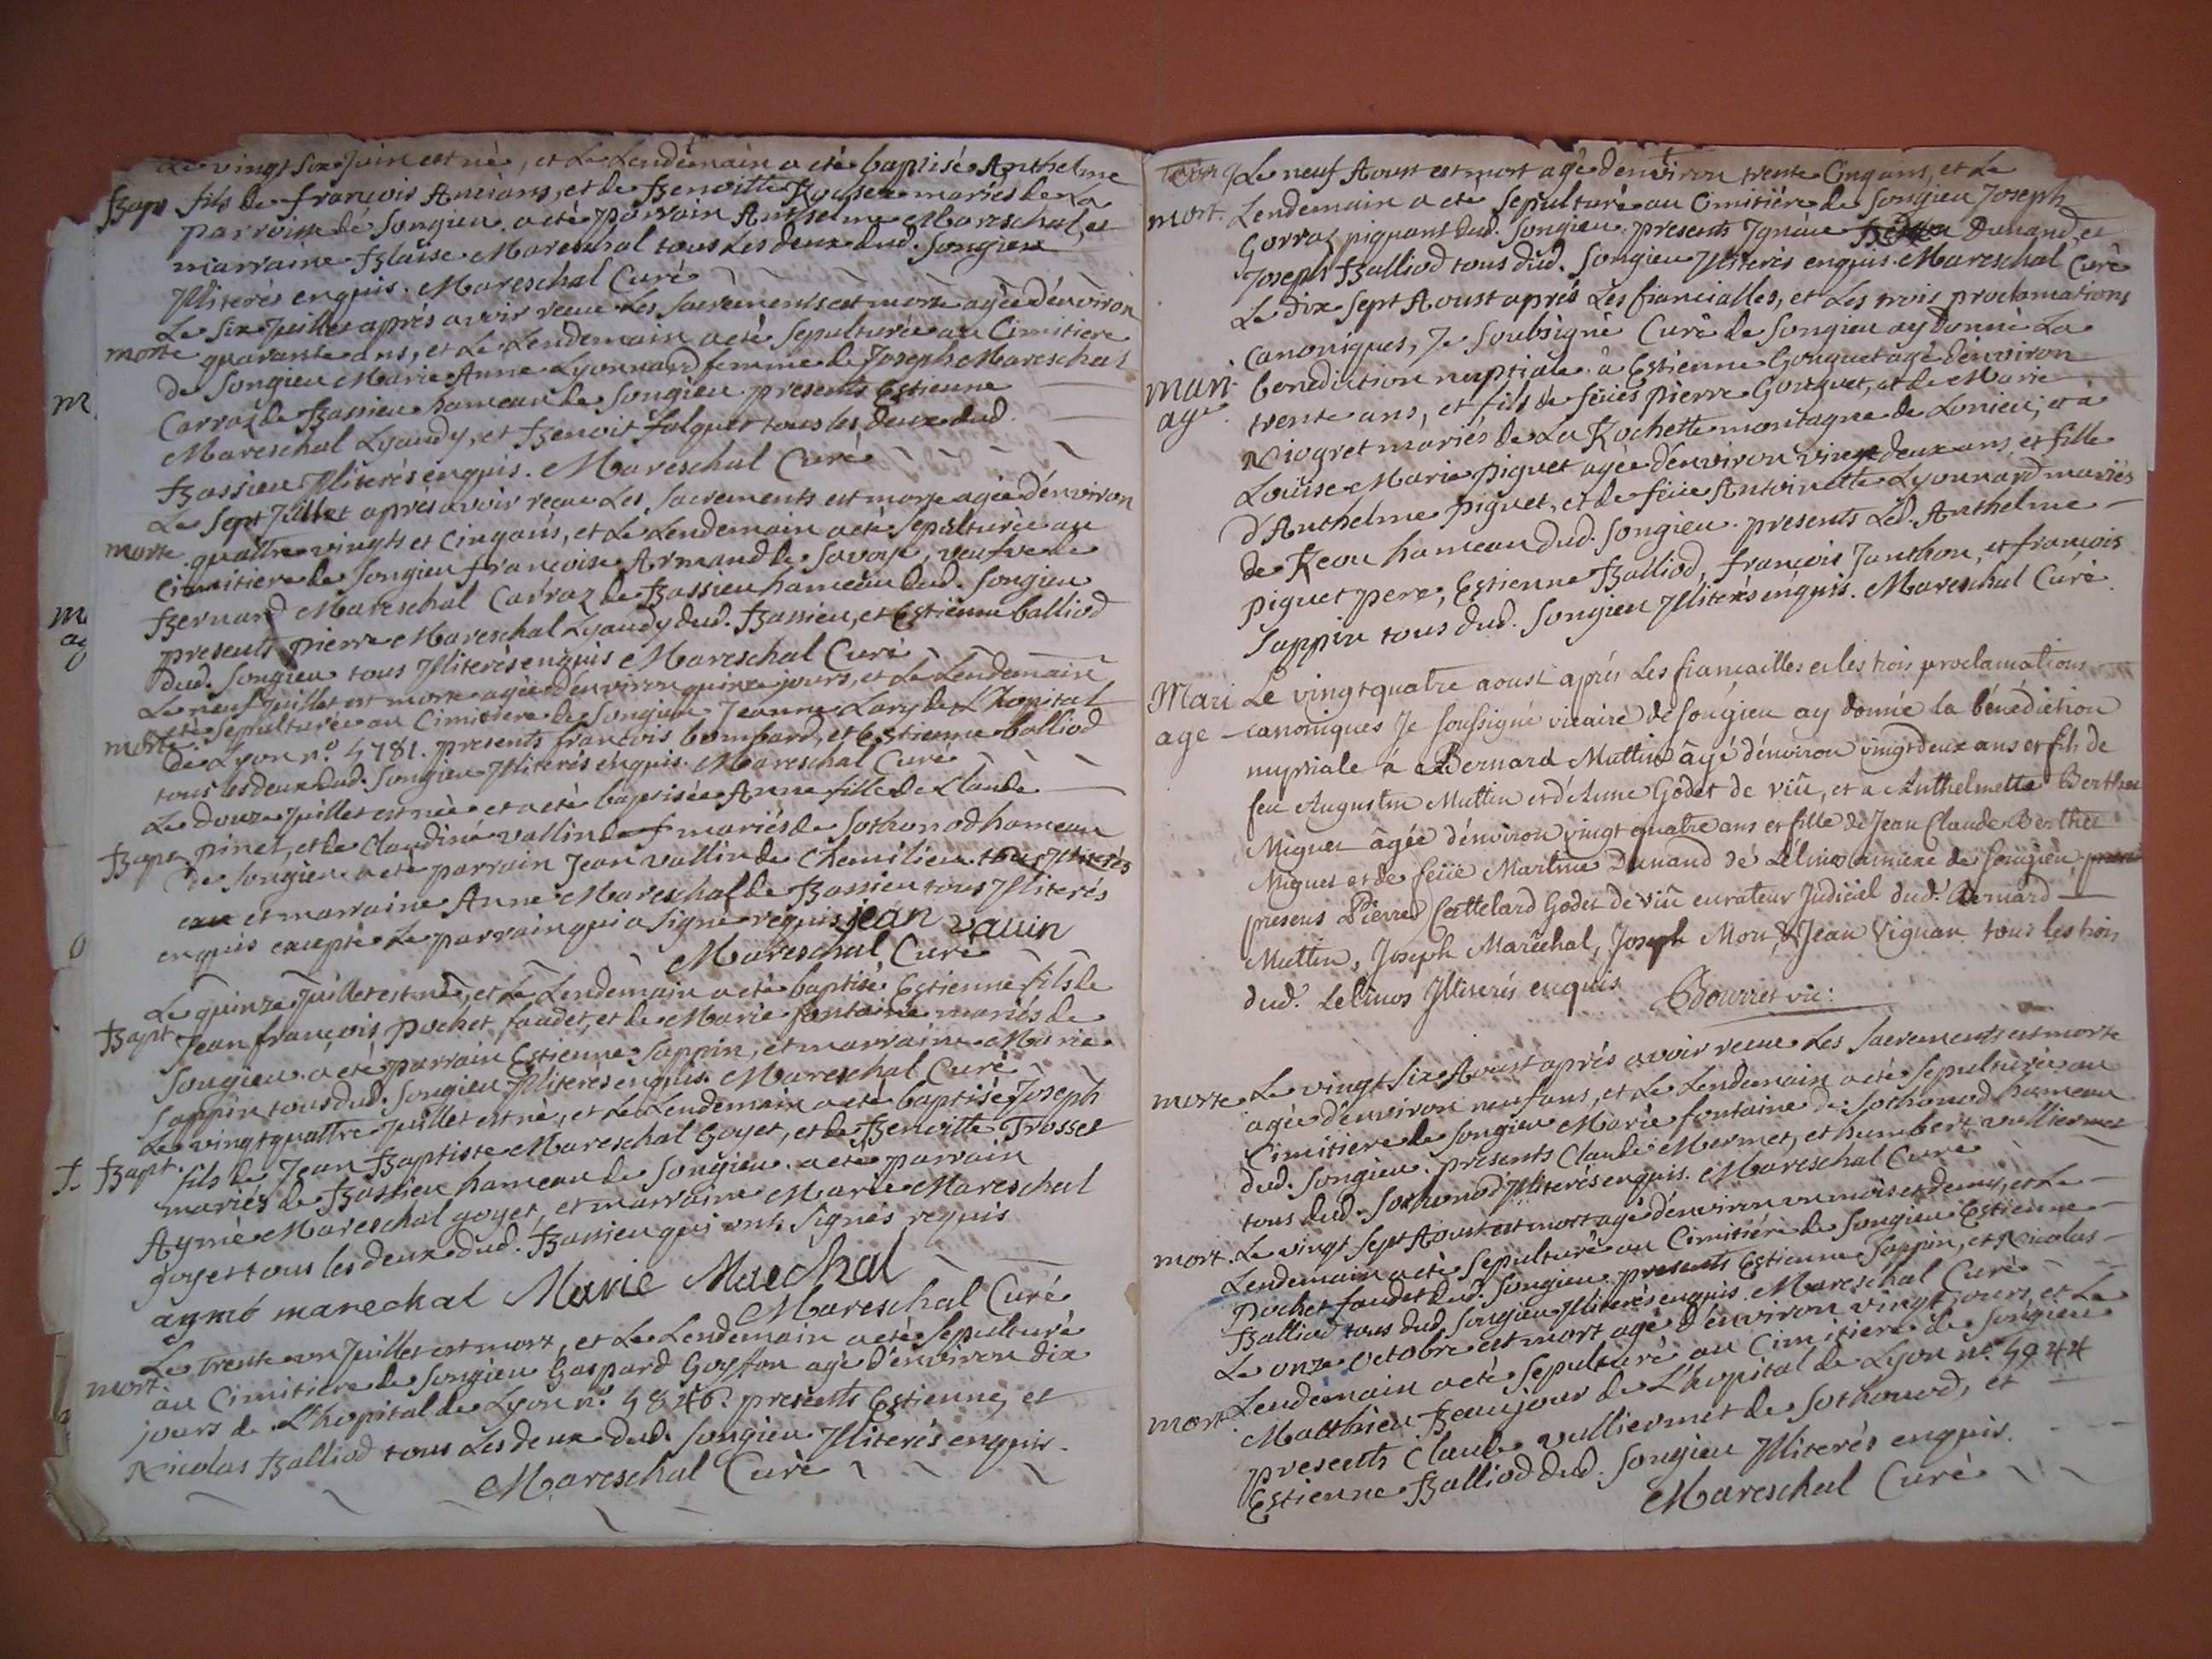 Le vingt six Juin est né, et Le Lendemain a eté baptisé Anthelme
Bapt fils de françois Ancians, et de Benoitte Rousset mariés de La
parroisse de Songieu. a eté parrain Anthelme Mareschal, et
marraine Blaise Mareschal tous Les deux dud. Songieu
Jlliterés enquis. Mareschal Curé
Le six Juillet aprés avoir receue Les Sacrements est morte agée d'environ
morte quarante ans, et Le Lendemain a eté Sepulturée au Cimitiere
de Songieu Marie Anne Lyonnard femme de Joseph Mareschal
Carraz de Bassieu hameau de Songieu presents Estienne
Mareschal Lyaudy, et Benoit falquet tous les deux dud.
Bassieu Jlliterés enquis. Mareschal Curé
Le Sept Juillet aprés avoir reçeue Les Sacrements est morte agée d'environ
morte quattre vingts et Cinq ans, et Le Lendemain a eté Sepulturée au
Cimitiere de Songieu françoise Armand de Savoye, veufve de
Bernard Mareschal Carraz de Bassieu hameau dud. Songieu
presents pierre Mareschal Lyaudy dud. Bassieu, et Estienne balliod
dud. Songieu tous Jlliterés enquis Mareschal Curé
Le neuf Juillet est morte agée d'environ quinze jours, et Le Lendemain
morte eté Sepulturée au Cimitiere de Songieu Jeanne Lary de L'hopital
de Lyon n.° 4781. presents françois bombard, et Estienne balliod
tous les deux dud. Songieu Jlliterés enquis. Mareschal Curé
Le douze Juillet est née et a eté baptisée Anne fille de Claude
Bapt. pinet, et de Claudine vallin de f mariés de Sothonod hameau
de Songieu a eté parrain Jean vallin de Chemilieu tous Jlliterés
et marraine Anne Mareschal de Bassieu tous Jlliterés
enquis excepté Le parrain qui a Signé requis jean vauin
Mareschal Curé
Le quinze Juillet est né, et Le Lendemain a eté baptisé Estienne fils de
Bapt Jean françois pochet faudet, et de Marie fontaine mariés de
Songieu. a eté parrain Estienne Sappin, et marraine Marie
Sappin tous dud. Songieu Jlliterés enquis. Mareschal Curé
Le vingt quattre Juillet est né, et Le Lendemain a eté baptisé Joseph
Bapt. fils de Jean Baptiste Mareschal Goyet, et de Benoitte Trosset
mariés de Bassieu hameau de Songieu. a eté parrain
Aymé Mareschal goyet, et marraine Marie Mareschal
goyet tous les deux dud. Bassieu qui onts Signés requis
aymé marechal Marie Maechal
Mareschal Curé
Le Trente un Juillet est mort, et Le Lendemain a eté Sepulturé
mort. au Cimitiere de Songieu Gaspard Goyffon agé d'environ dix
jours de L'hopital de Lyon n.° 4846. presents Estienne, et
Nicolas Balliod tous Les deux dud. Songieu Jlliterés enquis.
Mareschal Curé
Le neuf Aoust est mort agé d'environ trente Cinq ans, et Le
mort. Lendemain a eté Sepulturé au Cimitiére de Songieu Joseph
Gorraz piquant dud. Songieu presents Jgnace Dunand, et
Joseph Balliod tous dud. Songieu Jlliterés enquis. Mareschal Curé
Le dix Sept Aoust aprés Les fiancialles, et Les trois proclamations
Canoniques, Je Soubsigné Curé de Songieu ay donné La
mari benediction nuptiale à Estienne Gouguet agé d'environ
age trente ans, et fils de feües pierre Gouguet, et de Marie
Niogret mariés de La Rochette montagne de Lonieu, et a
Loüise Marie piquet agée d'environ vingt deux ans, et fille
d'Anthelme piquet, et de feüe Antoinette Lyonnard mariés
de Reou hameau dud. Songieu. presents Led. Anthelme
piquet pere, Estienne Balliod, françois Janthon, et françois
Sappin tous dud. Songieu Jlliterés enquis. Mareschal Curé.
Mari Le vingt quatre aoust aprés Les fiancailles et les trois proclamations
age canoniques Je soussigné vicaire de songieu ay donné la bénédiction
nuptiale á Bernard Muttin âgé d'environ vingt deux ans et fils de
feu Augustin Muttin et d'Anne Godet de viû, et a Anthelmette Berthet
Miguet âgée d'environ vingt quatre ans et fille de Jean Claude Berthet
Miguet et de feüe Martine Dunand de Lélinos de songieu
presens Pierre Cattelard Godet de viû curateur Judiciel dud. Bernard
Muttin, Joseph Maréchal, Joseph Mon, & Jean Vignan tous les trois
dud. Lelinos Jlliterés enquis Bourret vic:
morte Le vingt Six Aoust aprés avoir receue Les Sacrements est morte
agée d'environ neuf ans, et Le Lendemain a eté Sepulturée au
Cimitiere de Songieu Marie fontaine de Sothonod hameau
dud. Songieu. presents Claude Mermet, et humbert vulliermet
tous dud. Sothonod Jlliterés enquis. Mareschal Curé
mort. Le vingt Sept Aoust est mort agé d'environ un mois et demy, et Le
Lendemain a eté Sepulturé au Cimitiére de Songieu Estienne
Pochet faudet dud. Songieu presents Estienne Sappin, et Nicolas
Balliod tous dud. Songieu Jlliterés enquis. Mareschal Curé
Le onze octobre est mort agé d'environ vingt jours, et Le
mort Lendemain a eté Sepulturé au Cimitiere de Songieu
Matthieu Beaujour de L'hopital de Lyon n.° 4944
presents Claude vulliermet de Sothonod, et
Estienne Balliod dud. Songieu Jlliterés enquis.
Mareschal Curé